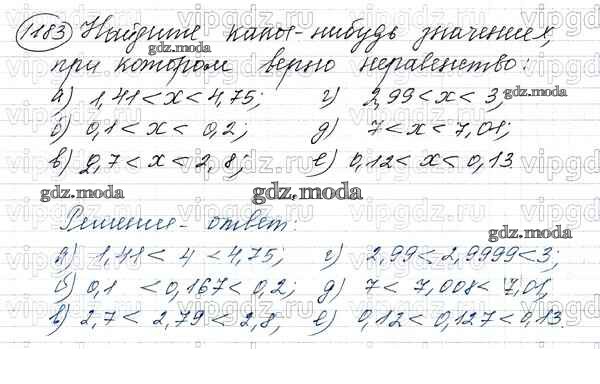 1183 Найдите какое-нибудь значение x,
при котором верно неравенство:
а) 1,41 < x < 4,75; г) 2,99 < x < 3;
б) 0,1 < x < 0,2; д) 7 < x < 7,01;
в) 2,7 < x < 2,8; е) 0,12 < x < 0,13.
gdz.moda
gdz.moda
gdz.moda
gdz.moda
Решение - ответ:
gdz.moda
gdz.moda
а) 1,41 < 4 < 4,75; г) 2,99 < 2,9999 < 3;
б) 0,1 < 0,167 < 0,2; д) 7 < 7,008 < 7,01;
в) 2,7 < 2,79 < 2,8; е) 0,12 < 0,127 < 0,13.
vipgdz.ru